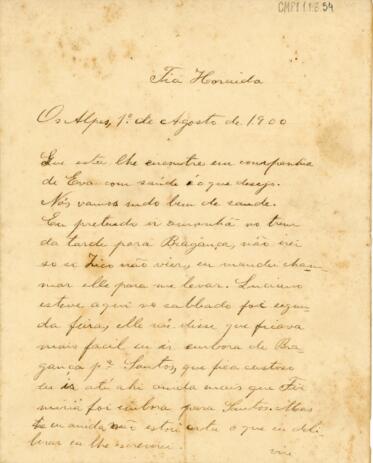 CMP 1.1.8.54
Tia Horaida
Os Alpes, 1º de Agosto de 1900
Que esta lhe encontre em companhia
de Eva com saúde é o que desejo.
Nós vamos indo bem de saude.
Eu pretendo ir amanhã no trem
da tarde para Bragança, não irei
só se Zico não vier, eu mandei cha-
mar elle para me levar. Luciano
esteve aqui no sabbado foi segun-
da feira, elle nos disse que ficava
mais facil eu ir embora de Bra-
gança pª Santos, que fica custoso
eu ir até ahi ainda mais que
foi embora para Santos. Mas
eu ainda não estou certa o que eu deli-
berar eu lhe escreverei.